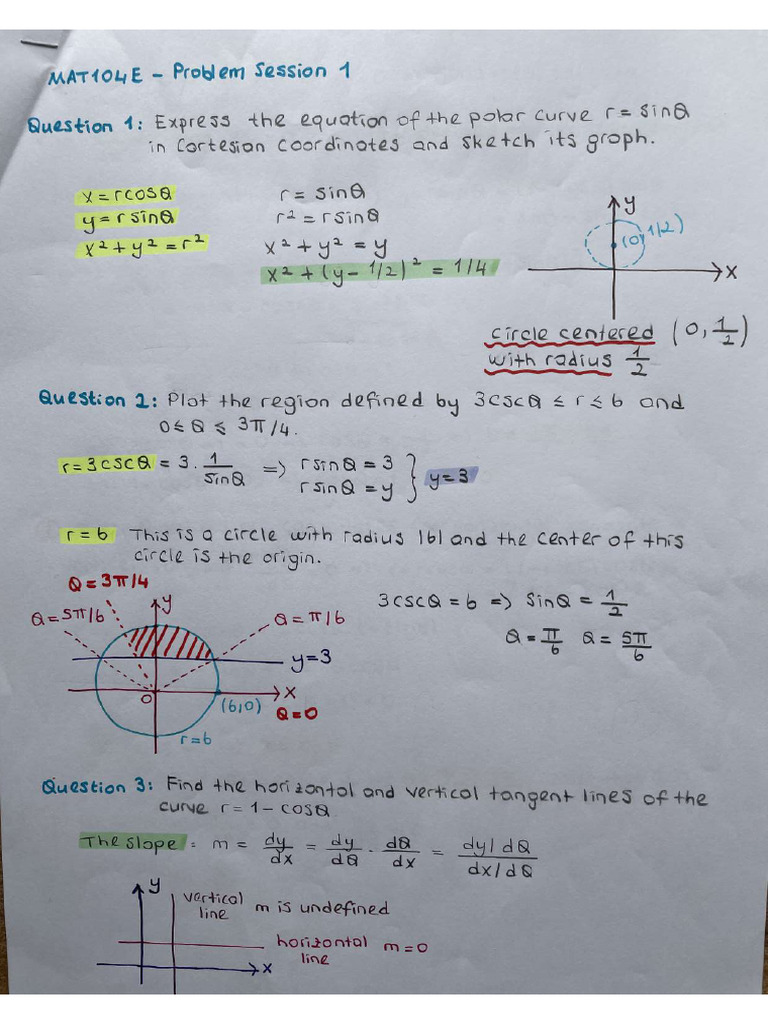 MAT104E - Problem Session 1
Question 1: Express the equation of the polar curve r = sinθ
in Cartesian coordinates and sketch its graph.
x = rcosθ
y = r sinθ
x² + y² = r²
r = sinθ
r² = r sinθ
x² + y² = y
x² + (y - 1/2)² = 1/4
y
(0, 1/2)
x
circle centered (0, 1/2)
with radius 1/2
Question 2: Plot the region defined by 3cscθ ≤ r ≤ 6 and
0 ≤ θ ≤ 3π/4.
r = 3cscθ = 3 · 1/sinθ => r sinθ = 3
r sinθ = y } y = 3
r = 6 This is a circle with radius |6| and the center of this
circle is the origin.
θ = 3π/4
y
θ = 5π/6
θ = π/6
y = 3
0
x
(6,0)
θ = 0
r = 6
3cscθ = 6 => sinθ = 1/2
θ = π/6 θ = 5π/6
Question 3: Find the horizontal and vertical tangent lines of the
curve r = 1 - cosθ
The slope: m = dy/dx = dy/dθ · dθ/dx = dy/dθ / dx/dθ
y
vertical
line
m is undefined
horizontal
line
m = 0
x